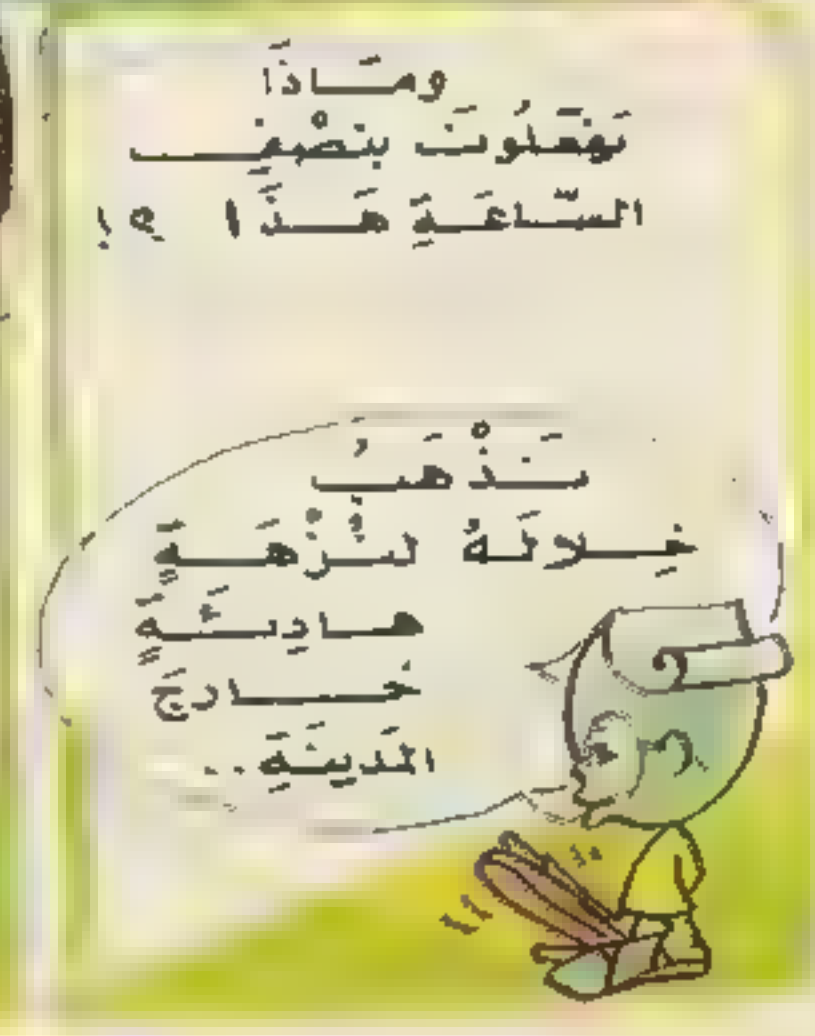 وَمَاذَا
تَفْعَلُونَ بِنِصْفِ
السَّاعَةِ هَذَا ؟!
نَذْهَبُ
خِلَالَهُ لِنُزْهَةٍ
هَادِئَةٍ
خَارِجَ
المَدِينَةِ..